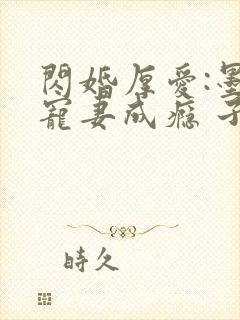 閃婚厚愛:墨
寵妻成癮 子
時久